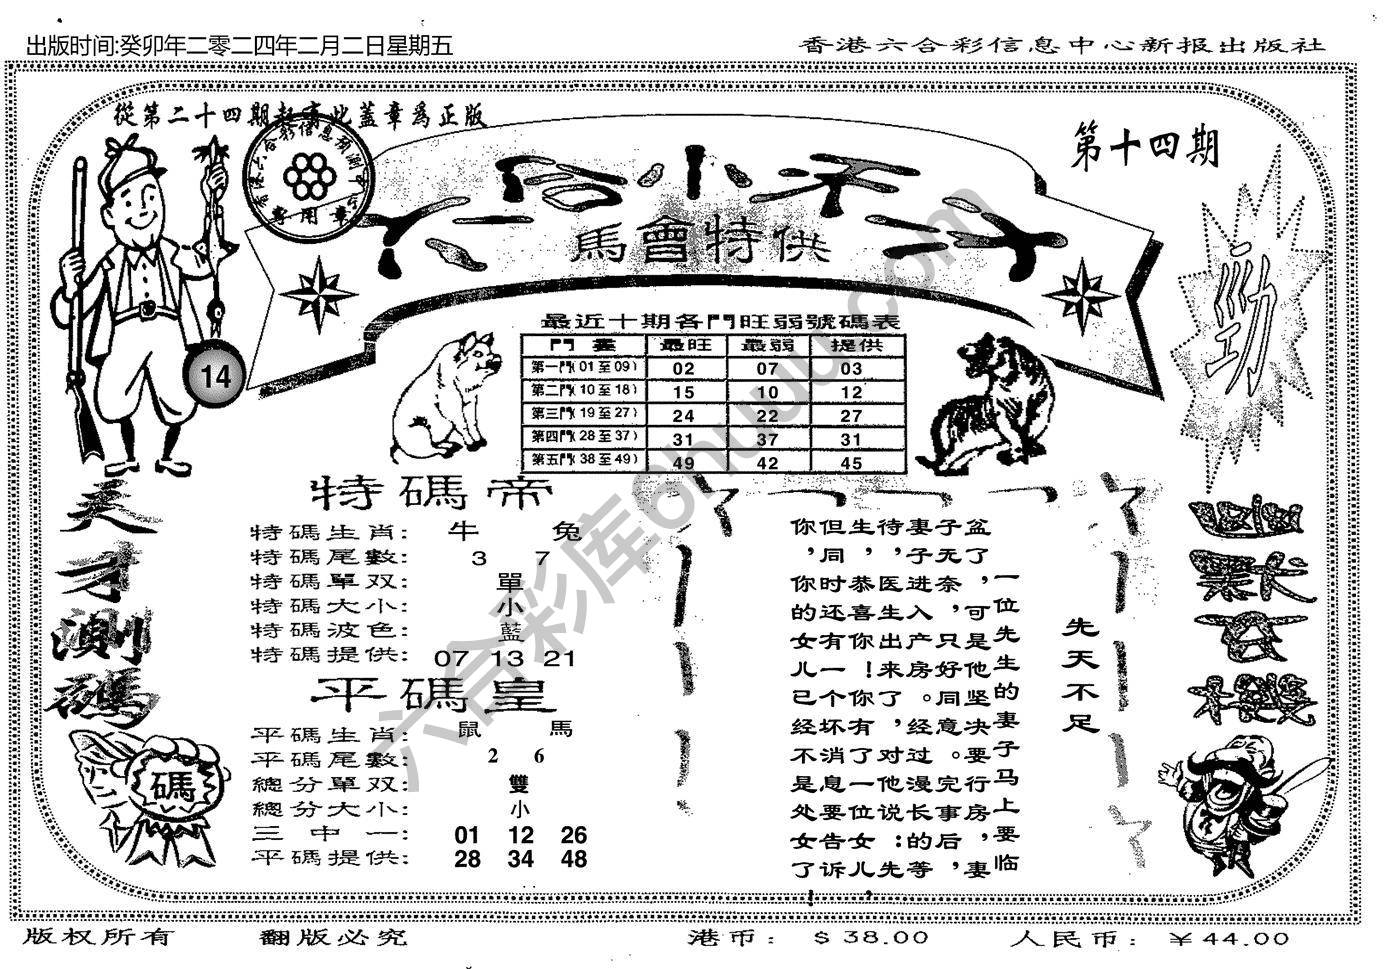 出版时间:癸卯年二零二四年二月二日星期五
香港六合彩信息中心新报出版社
從第二十四期起蓋此蓋章爲正版
第十四期
六合小天子
馬會特供
專用章
勁
14
最近十期各門旺弱號碼表
門 最旺 最弱 提供
第一門(01至09) 02 07 03
第二門(10至18) 15 10 12
第三門(19至27) 24 22 27
第四門(28至37) 31 37 31
第五門(38至49) 49 42 45
天才測碼
碼
特碼帝
特碼生肖: 牛 兔
特碼尾數: 3 7
特碼單双: 單
特碼大小: 小
特碼波色: 藍
特碼提供: 07 13 21
平碼皇
平碼生肖: 鼠 馬
平碼尾數: 2 6
總分單双: 雙
總分大小: 小
三中一: 01 12 26
平碼提供: 28 34 48
先天不足
一位先生的妻子马上要临
盆了，可是他坚决要行房，妻
子无奈，只好同意。完事后，
妻子进入产房。经过漫长的等
待，医生出来了，对他说：先
生，恭喜你！你有了一位女儿，
但同时还有一个坏消息要告诉
你，你的女儿已经不是处女了！
幽默玄機
版权所有
翻版必究
港币: $38.00
人民币: ¥44.00
六合彩库6huu.com